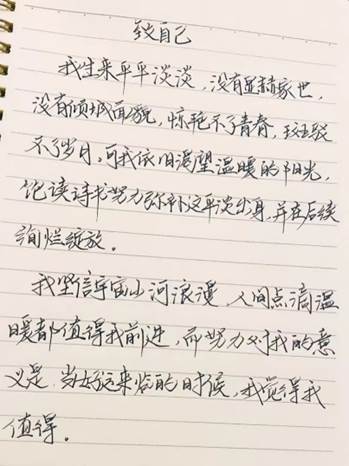 致自己
我生来平平淡淡，没有显赫家世，
没有倾城面貌，惊艳不了青春，斑驳
不了岁月，可我依旧渴望温暖的阳光，
饱读诗书努力弥补这平淡出身，并在后续
绚烂绽放。
我坚信宇宙山河浪漫，人间点滴温
暖都值得我前进，而努力对我的意
义是，当好运来临的时候，我觉得我
值得。